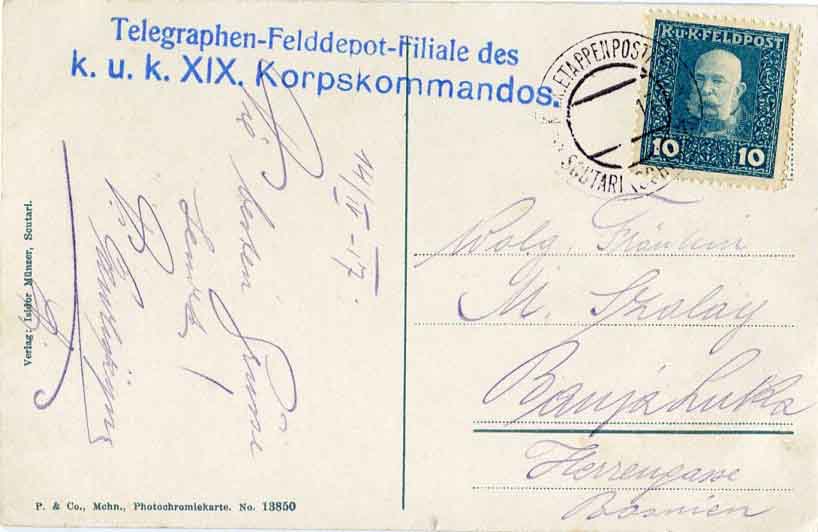 Telegraphen-Felddepot-Filiale des
k. u. k. XIX. Korpskommandos.
K.u.K.FELDPOST
10 10
ETAPPENPOSTA
SCUTARI
14/IV-17.
Die besten Grüsse
sendet
Wolg. Fräulein
M. Szalay
Banjaluka
Herrengasse
Bosnien
Verlag: Isidor Münzer, Scutari.
P. & Co., Mchn., Photochromiekarte. No. 13850